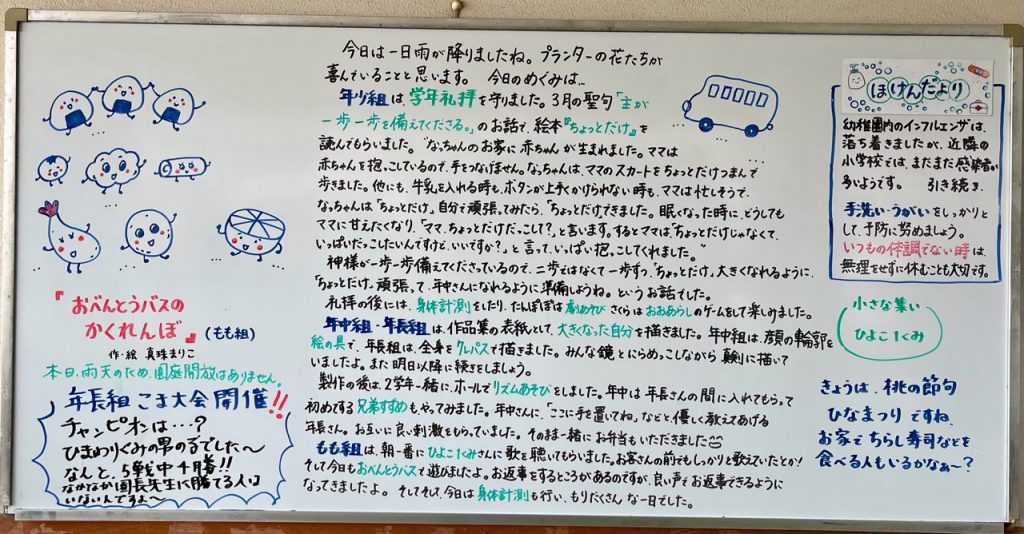 今日は一日雨が降りましたね。プランターの花たちが
喜んでいることと思います。 今日のめぐみは…
年少組は、学年礼拝を守りました。3月の聖句「主が
一歩一歩を備えてくださる。」のお話で、絵本『ちょっとだけ』を
読んでもらいました。"なっちゃんのお家に赤ちゃんが生まれました。ママは
赤ちゃんを抱っこしているので、手をつなげません。なっちゃんは、ママのスカートをちょっとだけつまんで
歩きました。他にも、牛乳を入れる時も、ボタンが上手くかけられない時も、ママは忙しそうで、
なっちゃんは「ちょっとだけ」自分で頑張ってみたら、「ちょっとだけ」できました。眠くなった時に、どうしても
ママに甘えたくなり、「ママ、ちょっとだけだっこして?」と言います。するとママは「ちょっとだけじゃなくて、
いっぱいだっこしたいんですけど、いいですか?」と言って、いっぱい抱っこしてくれました。"
神様が一歩一歩備えてくださっているので、二歩ではなくて一歩ずつ、「ちょっとだけ」大きくなれるように、
「ちょっとだけ」頑張って、年中さんになれるように準備しようね。というお話でした。
礼拝の後には、身体計測をしたり、たんぽぽは劇あそび さくらはおおあらしのゲームをして楽しみました。
年中組・年長組は、作品集の表紙として、大きくなった自分を描きました。年中組は、顔の輪郭を
絵の具で、年長組は、全身をクレパスで描きました。みんな鏡とにらめっこしながら 真剣に描いて
いましたよ。また明日以降に続きをしましょう。
製作の後は、2学年一緒に、ホールでリズムあそびをしました。年中は年長さんの間に入れてもらって
初めてする兄弟すずめもやってみました。年中さんに、「ここに手を置いてね」などと優しく教えてあげる
年長さん。お互いに良い刺激をもらっていました。そのまま一緒にお弁当もいただきました
もも組は、朝一番にひよこ1くみさんに歌を聴いてもらいました。お客さんの前でもしっかりと歌えていたとか!
そして今日もおべんとうバスで遊びましたよ。お返事をするところがあるのですが、良い声でお返事できるように
なってきましたよ。そしてそして、今日は身体計測も行い、もりだくさんな一日でした。
『おべんとうバスの
かくれんぼ』(もも組)
作・絵 真珠まりこ
本日、雨天のため、園庭開放はありません。
年長組 こま大会 開催!!
チャンピオンは…?
ひまわりくみの男の子でした〜
なんと、5戦中4勝!!
なかなか園長先生に勝てる人は
いないんですよ〜
ほけんだより
幼稚園内のインフルエンザは、
落ち着きましたが、近隣の
小学校では、まだまだ感染者が
多いようです。 引き続き、
手洗い・うがいをしっかりと
して、予防に努めましょう。
いつもの体調でない時は、
無理をせずに休むことも大切です。
小さな集い
ひよこ1くみ
きょうは、桃の節句
ひなまつりですね。
お家でちらし寿司などを
食べる人もいるかなぁ〜?